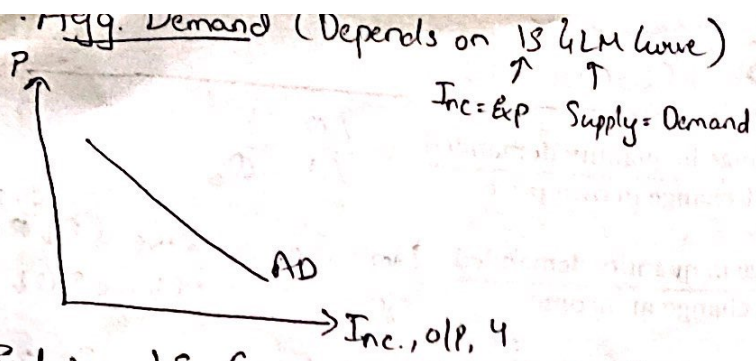 · Agg. Demand (Depends on IS & LM Curve)
Inc = Exp Supply = Demand
P
AD
Inc., o/p, Y